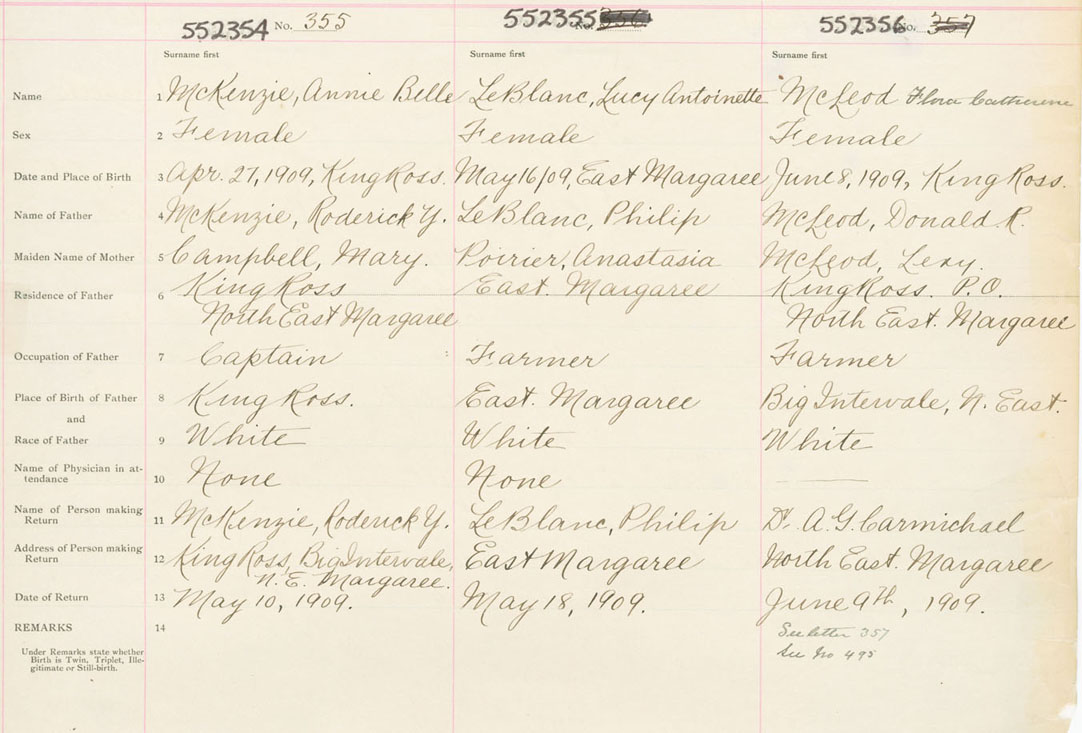 552354 No. 355 552355 No. 356 552356 No. 357
Surname first Surname first Surname first
Name 1 McKenzie, Annie Belle LeBlanc, Lucy Antoinette McLeod Flora Catherine
Sex 2 Female Female Female
Date and Place of Birth 3 Apr. 27, 1909, King Ross. May 16/09, East Margaree June 8, 1909, King Ross.
Name of Father 4 McKenzie, Roderick Y. LeBlanc, Philip McLeod, Donald R.
Maiden Name of Mother 5 Campbell, Mary. Poirier, Anastasia McLeod, Lexy.
Residence of Father 6 King Ross East. Margaree King Ross. P.O.
North East Margaree North East. Margaree
Occupation of Father 7 Captain Farmer Farmer
Place of Birth of Father 8 King Ross. East. Margaree Big Intervale, N. East.
and
Race of Father 9 White White White
Name of Physician in at-
tendance 10 None None
Name of Person making
Return 11 McKenzie, Roderick Y. LeBlanc, Philip Dr. A. G. Carmichael
Address of Person making
Return 12 King Ross, Big Intervale, East Margaree North East. Margaree
N. E. Margaree.
Date of Return 13 May 10, 1909. May 18, 1909. June 9th, 1909.
REMARKS 14 See letter 357
See No 495
Under Remarks state whether
Birth is Twin, Triplet, Ille-
gitimate or Still-birth.